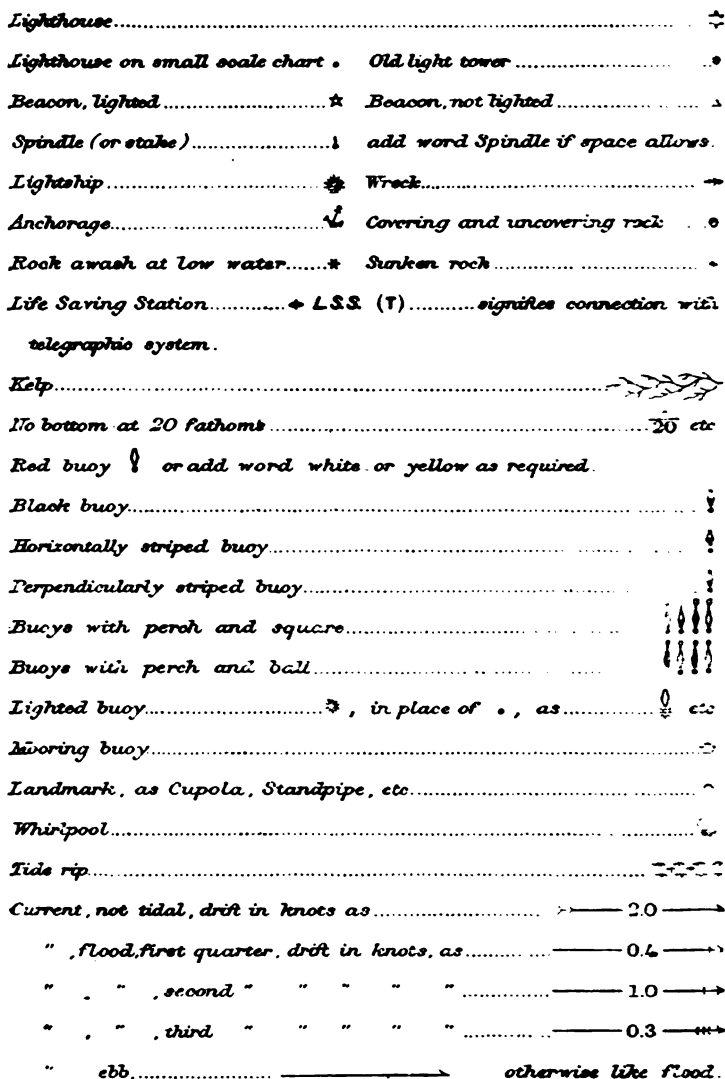 Lighthouse
Lighthouse on small scale chart . Old light tower
Beacon, lighted Beacon, not lighted
Spindle (or stake) add word Spindle if space allows.
Lightship Wreck
Anchorage Covering and uncovering rock
Rock awash at low water Sunken rock
Life Saving Station L.S.S. (T) signifies connection with
telegraphic system.
Kelp
No bottom at 20 fathoms 20 etc
Red buoy or add word white or yellow as required.
Black buoy
Horizontally striped buoy
Perpendicularly striped buoy
Buoys with perch and square
Buoys with perch and ball
Lighted buoy , in place of . , as etc
Mooring buoy
Landmark, as Cupola, Standpipe, etc
Whirlpool
Tide rip
Current, not tidal, drift in knots as 2.0
" , flood, first quarter, drift in knots, as
" , " , second " " " " " 1.0
" , " , third " " " " " 0.3
" ebb, otherwise like flood.